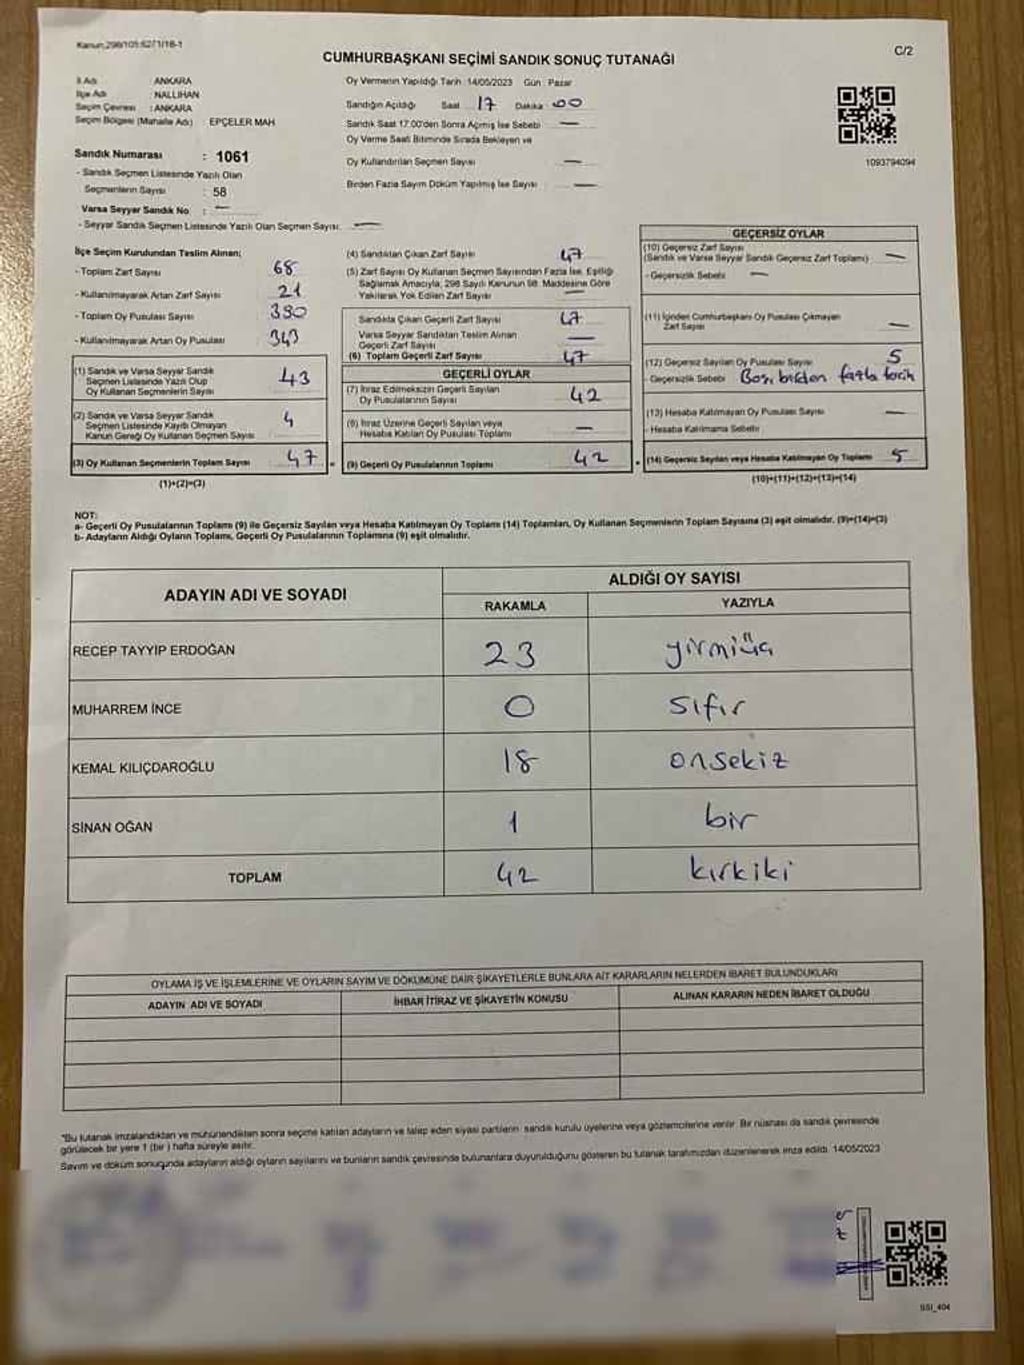 Kanun:298/105:6271/18-1
C/2
CUMHURBAŞKANI SEÇİMİ SANDIK SONUÇ TUTANAĞI
İl Adı ANKARA
İlçe Adı : NALLIHAN
Seçim Çevresi : ANKARA
Seçim Bölgesi (Mahalle Adı) : EPÇELER MAH
Sandık Numarası : 1061
- Sandık Seçmen Listesinde Yazılı Olan
Seçmenlerin Sayısı : 58
Varsa Seyyar Sandık No : —
- Seyyar Sandık Seçmen Listesinde Yazılı Olan Seçmen Sayısı: —
Oy Vermenin Yapıldığı Tarih :14/05/2023 Gün : Pazar
Sandığın Açıldığı Saat 17 Dakika 00
Sandık Saat 17.00'den Sonra Açmış İse Sebebi —
Oy Verme Saati Bitiminde Sırada Bekleyen ve
Oy Kullandırılan Seçmen Sayısı —
Birden Fazla Sayım Döküm Yapılmış İse Sayısı —
1093794094
İlçe Seçim Kurulundan Teslim Alınan;
- Toplam Zarf Sayısı 68
- Kullanılmayarak Artan Zarf Sayısı 21
- Toplam Oy Pusulası Sayısı 390
- Kullanılmayarak Artan Oy Pusulası 343
(1) Sandık ve Varsa Seyyar Sandık
Seçmen Listesinde Yazılı Olup
Oy Kullanan Seçmenlerin Sayısı 43
(2) Sandık ve Varsa Seyyar Sandık
Seçmen Listesinde Kayıtlı Olmayan
Kanun Gereği Oy Kullanan Seçmen Sayısı 4
(3) Oy Kullanan Seçmenlerin Toplam Sayısı 47
(1)+(2)=(3)
(4) Sandıktan Çıkan Zarf Sayısı 47
(5) Zarf Sayısı Oy Kullanan Seçmen Sayısından Fazla İse, Eşitliği
Sağlamak Amacıyla, 298 Sayılı Kanunun 98. Maddesine Göre
Yakılarak Yok Edilen Zarf Sayısı —
Sandıkta Çıkan Geçerli Zarf Sayısı 47
Varsa Seyyar Sandıktan Teslim Alınan
Geçerli Zarf Sayısı —
(6) Toplam Geçerli Zarf Sayısı 47
GEÇERLİ OYLAR
(7) İtiraz Edilmeksizin Geçerli Sayılan
Oy Pusulalarının Sayısı 42
(8) İtiraz Üzerine Geçerli Sayılan veya
Hesaba Katılan Oy Pusulası Toplamı —
(9) Geçerli Oy Pusulalarının Toplamı 42
GEÇERSİZ OYLAR
(10) Geçersiz Zarf Sayısı
(Sandık ve Varsa Seyyar Sandık Geçersiz Zarf Toplamı) —
- Geçersizlik Sebebi —
(11) İçinden Cumhurbaşkanı Oy Pusulası Çıkmayan
Zarf Sayısı —
(12) Geçersiz Sayılan Oy Pusulası Sayısı 5
- Geçersizlik Sebebi Boş, birden fazla tercih
(13) Hesaba Katılmayan Oy Pusulası Sayısı —
- Hesaba Katılmama Sebebi
(14) Geçersiz Sayılan veya Hesaba Katılmayan Oy Toplamı 5
(10)+(11)+(12)+(13)=(14)
NOT:
a- Geçerli Oy Pusulalarının Toplamı (9) ile Geçersiz Sayılan veya Hesaba Katılmayan Oy Toplamı (14) Toplamları, Oy Kullanan Seçmenlerin Toplam Sayısına (3) eşit olmalıdır. (9)+(14)=(3)
b- Adayların Aldığı Oyların Toplamı, Geçerli Oy Pusulalarının Toplamına (9) eşit olmalıdır.
ADAYIN ADI VE SOYADI
ALDIĞI OY SAYISI
RAKAMLA YAZIYLA
RECEP TAYYİP ERDOĞAN 23 yirmiüç
MUHARREM İNCE 0 sıfır
KEMAL KILIÇDAROĞLU 18 onsekiz
SİNAN OĞAN 1 bir
TOPLAM 42 kırkiki
OYLAMA İŞ VE İŞLEMLERİNE VE OYLARIN SAYIM VE DÖKÜMÜNE DAİR ŞİKAYETLERLE BUNLARA AİT KARARLARIN NELERDEN İBARET BULUNDUKLARI
ADAYIN ADI VE SOYADI İHBAR İTİRAZ VE ŞİKAYETİN KONUSU ALINAN KARARIN NEDEN İBARET OLDUĞU
"Bu tutanak imzalandıktan ve mühürlendikten sonra seçime katılan adayların ve talep eden siyasi partilerin sandık kurulu üyelerine veya gözlemcilerine verilir. Bir nüshası da sandık çevresinde
görülecek bir yere 1 (bir) hafta süreyle asılır.
Sayım ve döküm sonucunda adayların aldığı oyların sayılarını ve bunların sandık çevresinde bulunanlara duyurulduğunu gösteren bu tutanak tarafımızdan düzenlenerek imza edildi. 14/05/2023
SSI_404